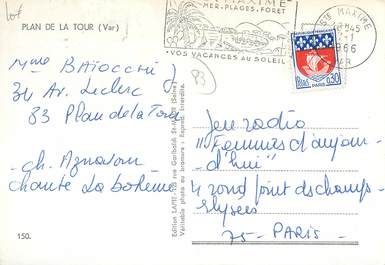 Lot
PLAN DE LA TOUR (Var)
MAXIME
MER. PLAGES. FORET
VOS VACANCES AU SOLEIL
STE MAXIME
45
1966
PARIS
0,30
83
Mme BAÏOCCHI J
34 Av. Leclerc
83 Plan de la Tour
ch. Aznavour
chante La bohème
Edition LAPIE - 125 rue Garibaldi St-MAUR (Seine)
Véritable photo au bromure - Reprod. Interdite.
Jeu radio
"Femmes d'aujour-
d'hui"
4 rond point des champs-
Elysées
75 - PARIS -
150.